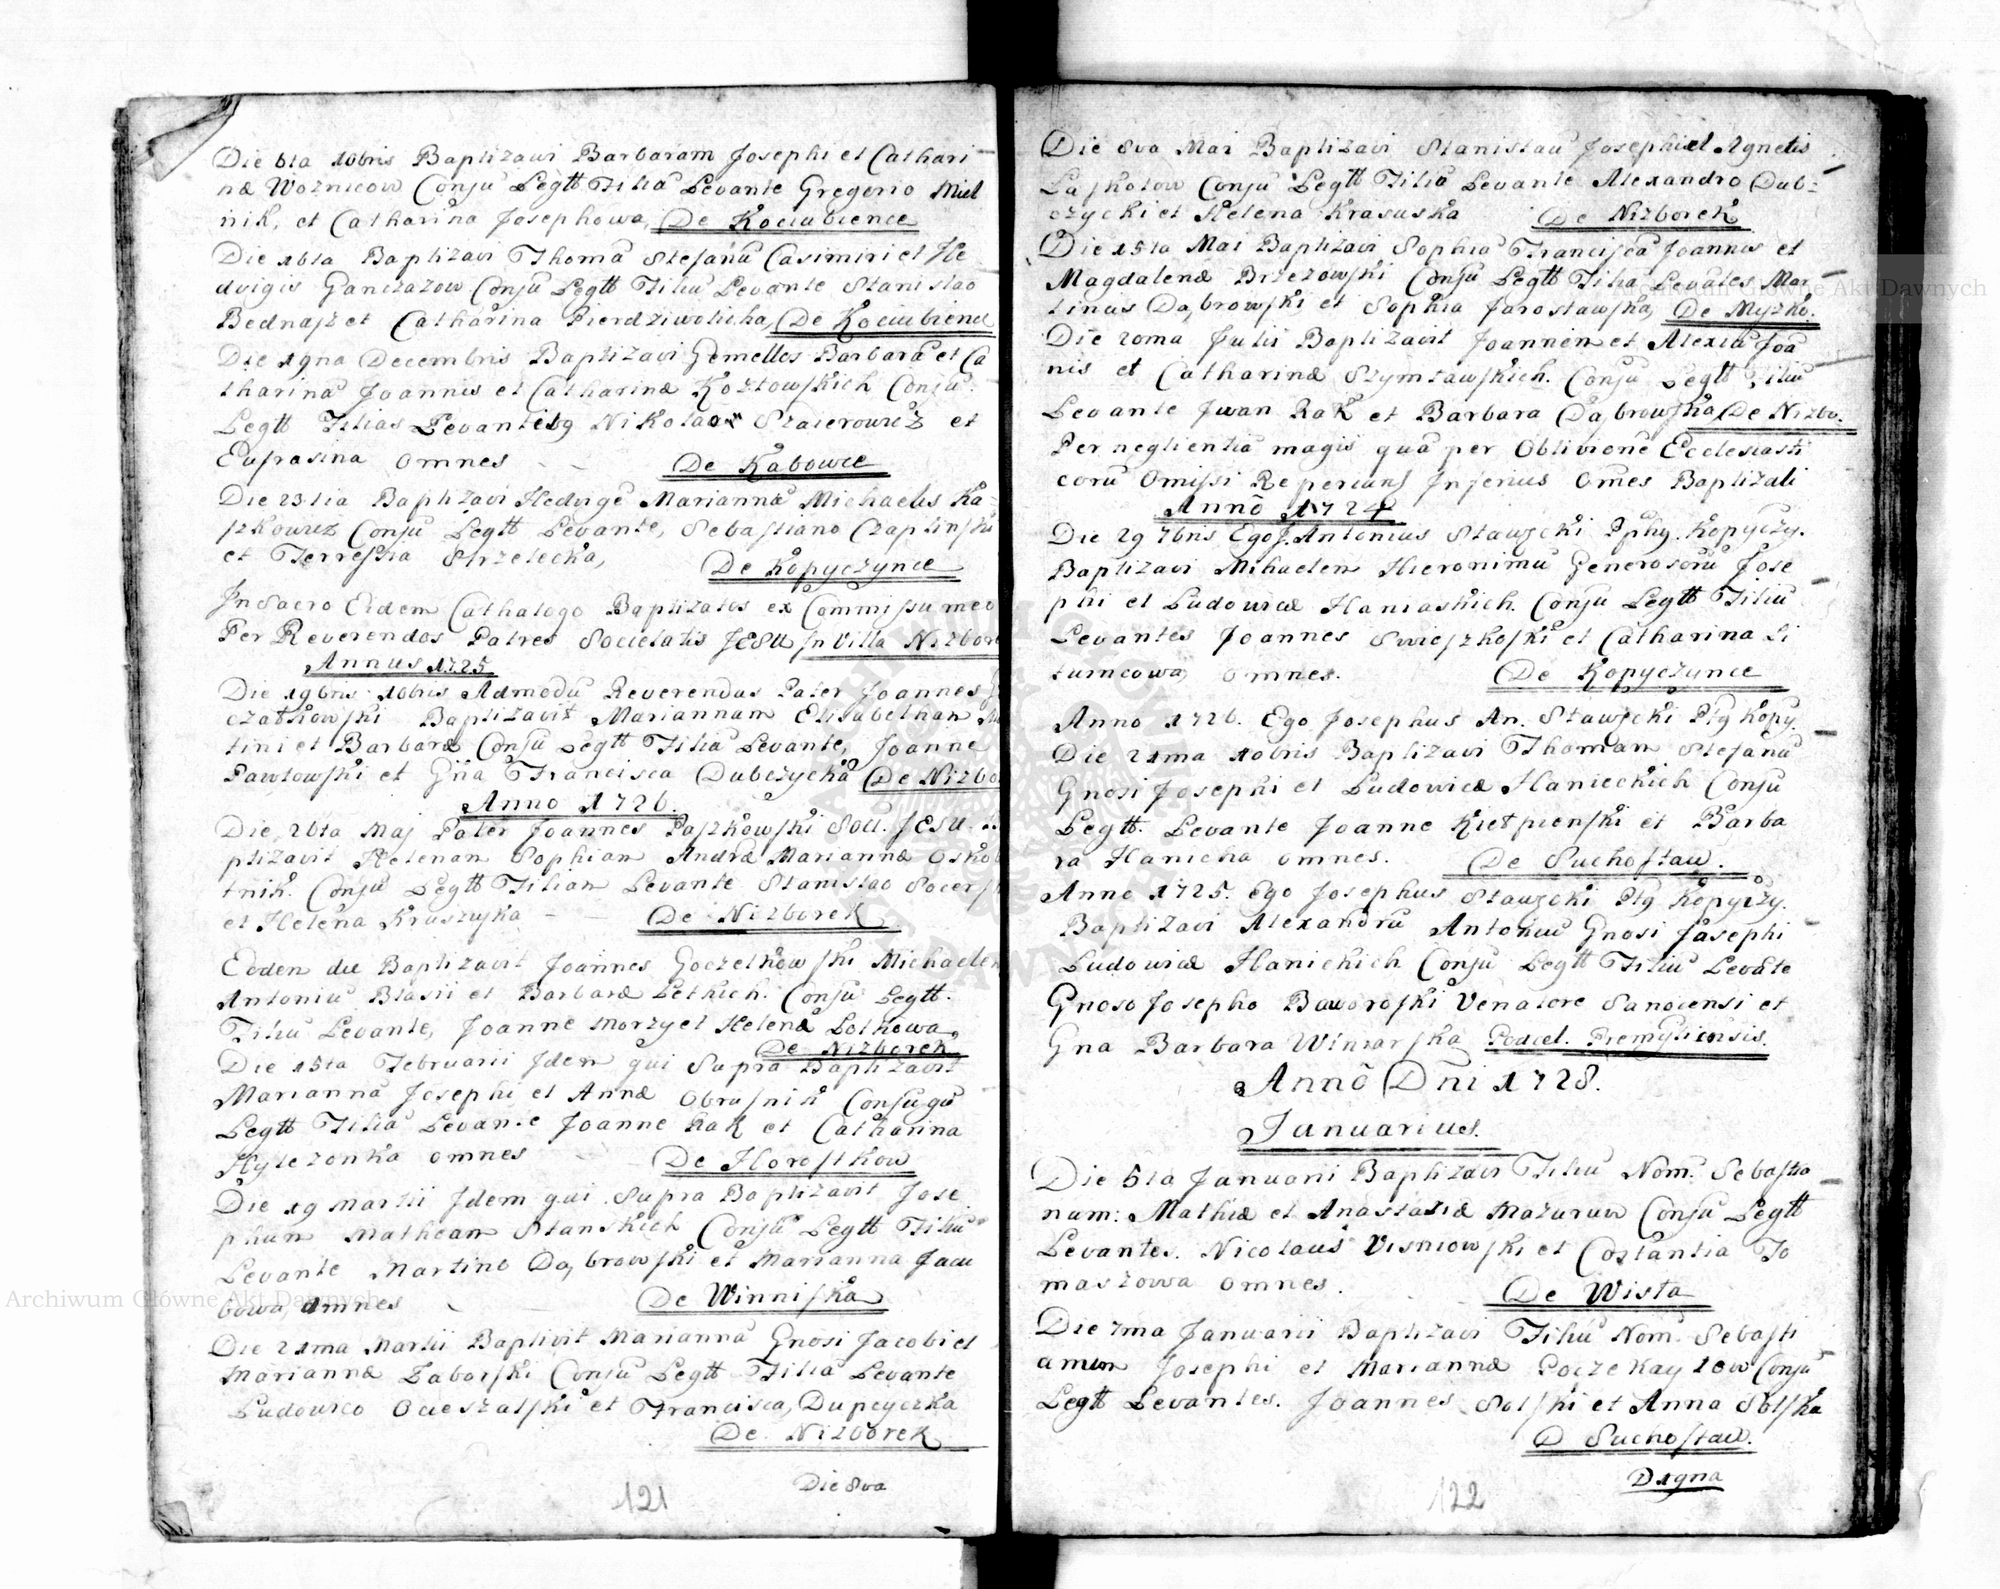 Die 6ta 10bris Baptizavi Barbaram Josephi et Cathari-
næ Woznicow Conju Legtt Filiā Levante Gregorio Miel
nik, et Catharina Josephowa, De Kociubience
Die 16ta Baptizavi Thomā Stefanū Casimiri et He-
dvigis Ganczazow Conjū Legtt Filiū Levante Stanislao
Bednasz et Catharina Pierdziwolicha, De Kociubience
Die 19na Decembris Baptizavi Gemellos Barbarā et Ca
tharinā Joannis et Catharinæ Kozłowskich Conju.
Legtt Filias Levantibq Nikolao Szaierowicz et
Eufrasina omnes De Kabowce
Die 23tia Baptizavi Hedvigē Mariannæ Michaelis Ka-
szkowicz Conjū Legtt Levante, Sebastiano Czaplinski
et Terressia Strzelecka, De Kopyczynce
In Sacro Eidem Cathalogo Baptizatos ex Commissu meo
Per Reverendos Patres Societatis JESU in Villa Nizbore
Annus 1725
Die 19bris 10bris Admodū Reverendus Pater Joannes
czatkowski Baptizavit Mariannam Elisabetham
tini et Barbaræ Conju Legtt Filiā Levante, Joanne
Pawłowski et Gña Francisca Dubczycka De Nizbo
Anno 1726.
Die 26ta Maj Pater Joannes Paszkowski Soci. JESU. Ba
ptizavit Helenam Sophiam Andræ Mariannæ
tnik. Conjū Legtt Filiam Levante Stanislao
et Helena Kruszyska De Nizborek
Eodem die Baptizavit Joannes Goczelkowski Michaelem
Antoniū Blasii et Barbaræ Letkich. Conjū Legtt.
Filiū Levante, Joanne Morzy et Helenā Lotkowa,
De Nizborek
Die 15ta Februarii Idem qui Supra Baptizavit
Mariannā Josephi et Annæ Obrusnik Conjugū
Legtt Filiā Levante Joanne Rak et Catharina
Hylezonka omnes De Horostkow
Die 19 Martii Idem qui Supra Baptizavit Jose
phum Matheam Stanskich Conjū Legtt Filiū
Levante Martino Dąbrowski et Marianna Jacu
bowa, omnes De Winniska
Die 21ma Martii Baptivit Mariannā Gnosi Jacobi et
Mariannæ Zaborski Conjū Legtt Filiā Levante
Ludovico Ocieszalski et Francisca, Dupczyczka
De Nizborek
Die 8va
121
Die 8va Mai Baptizavi Stanislaū Josephi et Agnetis
Laskotow Conjū Legtt Filiū Levante Alexandro Dub-
czycki et Helena Krasuska De Nizborek
Die 15ta Mai Baptizavi Sophiā Franciscā Joannis et
Magdalenæ Brzezowski Conjū Legtt Filiā Levātes Mar
tinus Dąbrowski et Sophia Jarosławska, De Myzko.
Die 20ma Julii Baptizavit Joannem et Alexiū Joa
nis et Catharinæ Szymławskich. Conjū Legtt Filiū
Levante Jwan Rak et Barbara Dąbrowska De Nizbo.
Per neglientiā magis quā per Oblivionē Ecclesiasti
corū Omissi Reperiunt Inferius Omēs Baptizati
Annō 1724
Die 29 7bris Ego J. Antonius Stawscki Pphg. Kopyczy.
Baptizavi Mihaelem Hieronimū Generosorū Jose
phi et Ludovicæ Haniaskich. Conjū Legtt Filiū
Levantes Joannes Swieszkoski et Catharina Li
tumcowa omnes. De Kopyczynce
Anno 1726. Ego Josephus An. Stawscki Ppg Kopy.
Die 21ma 10bris Baptizavi Thomam Stefanū
Gnosi Josephi et Ludovicæ Hanieckich Conjū
Legtt. Levante Joanne Kiełpienski et Barba
ra Hanicka omnes. De Suchostaw.
Anno 1725. Ego Josephus Stawscki Ppg Kopyczy.
Baptizavi Alexandrū Antoniū Gnosi Josephi
Ludovicæ Hanickich Conjū Legtt Filiū Levāte
Gnoso Josepho Baworoski Venatore Sanocensi et
Gna Barbara Winiarska Podcel. Premyliensis.
Annō Dñi 1728.
Januarius.
Die 5ta Januarii Baptizavi Filiū Nom: Sebastia
num: Mathiæ et Anastasiæ Mazurow Conjū Legtt
Levantes. Nicolaus Visniowski et Costantia To
maszowa omnes. De Wista
Die 7ma Januarii Baptizavi Filiū Nom. Sebasti
anum Josephi et Mariannæ Poczekaylow Conjū
Legtt Levantes. Joannes Solski et Anna Solska
D Suchostaw.
D 19na
122
Archiwum Główne Akt Dawnych
Archiwum Główne Akt Dawnych